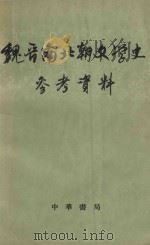 魏晋南北朝史
参考資料
中華書局